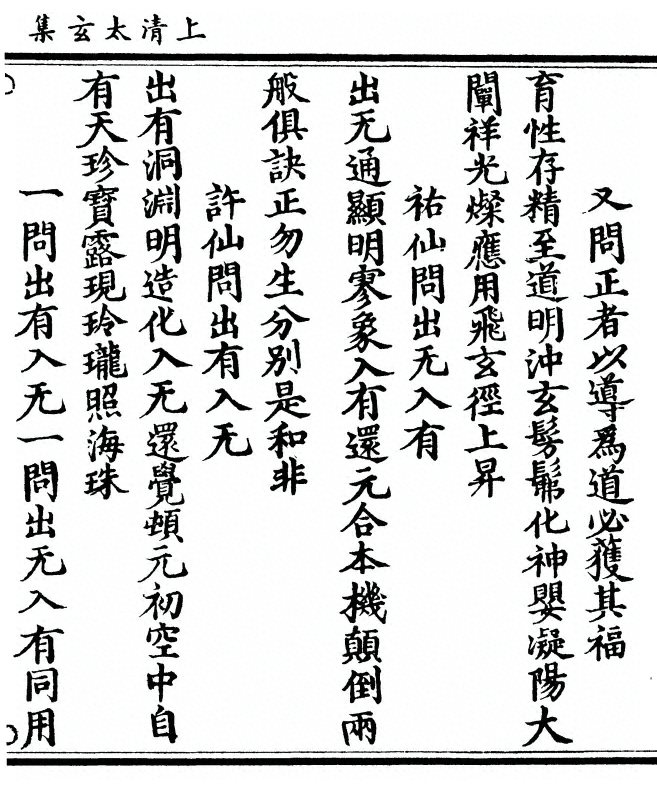 上清太玄集
又問正者以導爲道必獲其福
育性存精至道明沖玄髣髴化神嬰凝陽大
闡祥光燦應用飛玄徑上昇
祐仙問出无入有
出无通顯明寥象入有還元合本機顛倒兩
般俱訣正勿生分別是和非
許仙問出有入无
出有洞淵明造化入无還覺頓元初空中自
有天珍寶露現玲瓏照海珠
一問出有入无一問出无入有同用